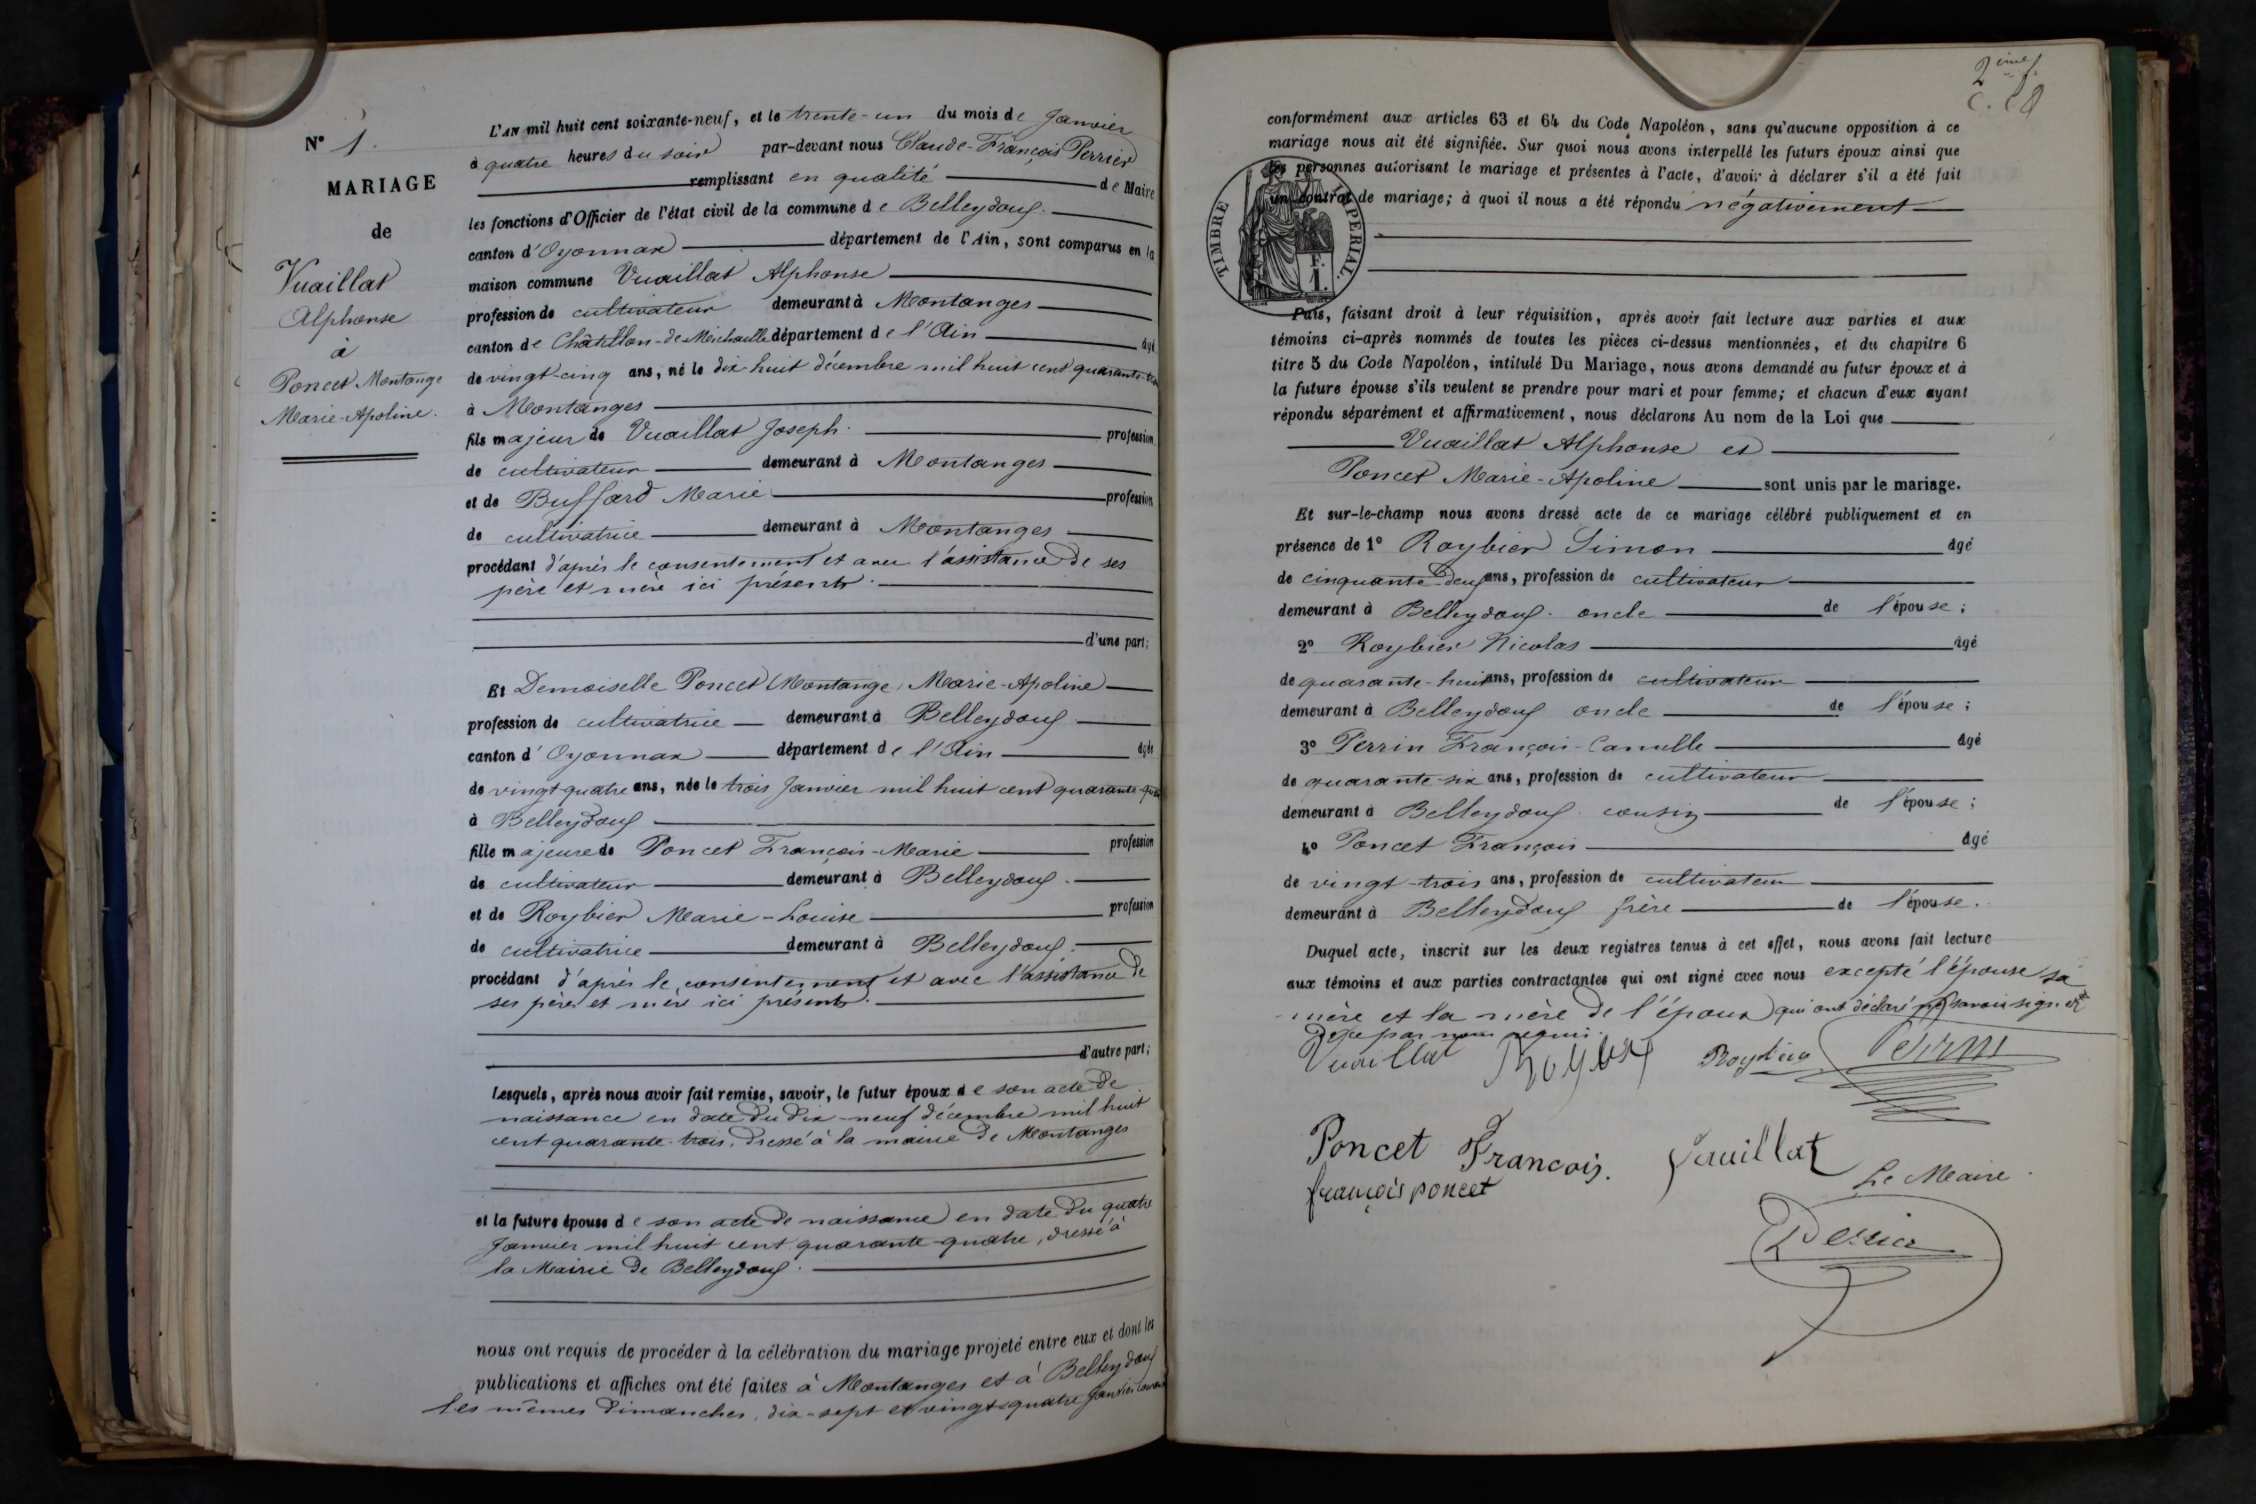 N° 1.
MARIAGE
de
Vuaillat
Alphonse
à
Poncet Montange
Marie-Apoline.
L'AN mil huit cent soixante-neuf, et le trente-un du mois de Janvier
à quatre heures du soir par-devant nous Claude-François Perrier
remplissant en qualité de Maire
les fonctions d'Officier de l'état civil de la commune de Belleydoux.
canton d'Oyonnax département de l'Ain, sont comparus en la
maison commune Vuaillat Alphonse
profession de cultivateur demeurant à Montanges
canton de Châtillon-de-Michaille département de l'Ain âgé
de vingt-cinq ans, né le dix huit décembre mil huit cent quarante-trois
à Montanges
fils majeur de Vuaillat Joseph. profession
de cultivateur demeurant à Montanges
et de Buffard Marie profession
de cultivatrice demeurant à Montanges
procédant d'après le consentement et avec l'assistance de ses
père et mère ici présents.
d'une part;
Et Demoiselle Poncet Montange, Marie-Apoline
profession de cultivatrice demeurant à Belleydoux
canton d'Oyonnax département de l'Ain âgée
de vingt quatre ans, née le trois Janvier mil huit cent quarante-quatre
à Belleydoux
fille majeure de Poncet François-Marie profession
de cultivateur demeurant à Belleydoux.
et de Roybier Marie-Louise profession
de cultivatrice demeurant à Belleydoux.
procédant d'après le consentement et avec l'assistance de
ses père et mère ici présents.
d'autre part;
Lesquels, après nous avoir fait remise, savoir, le futur époux de son acte de
naissance en date du dix-neuf décembre mil huit
cent quarante-trois, dressé à la mairie de Montanges
et la future épouse de son acte de naissance en date du quatre
Janvier mil huit cent quarante-quatre, dressé à
la Mairie de Belleydoux.
nous ont requis de procéder à la célébration du mariage projeté entre eux et dont les
publications et affiches ont été faites à Montanges et à Belleydoux
les mêmes Dimanches, dix-sept et vingt-quatre Janvier courant
2ème f.
conformément aux articles 63 et 64 du Code Napoléon, sans qu'aucune opposition à ce
mariage nous ait été signifiée. Sur quoi nous avons interpellé les futurs époux ainsi que
les personnes autorisant le mariage et présentes à l'acte, d'avoir à déclarer s'il a été fait
un contrat de mariage; à quoi il nous a été répondu négativement
TIMBRE IMPERIAL.
F.
1.
Puis, faisant droit à leur réquisition, après avoir fait lecture aux parties et aux
témoins ci-après nommés de toutes les pièces ci-dessus mentionnées, et du chapitre 6
titre 5 du Code Napoléon, intitulé Du Mariage, nous avons demandé au futur époux et à
la future épouse s'ils veulent se prendre pour mari et pour femme; et chacun d'eux ayant
répondu séparément et affirmativement, nous déclarons Au nom de la Loi que
Vuaillat Alphonse et
Poncet Marie-Apoline sont unis par le mariage.
Et sur-le-champ nous avons dressé acte de ce mariage célébré publiquement et en
présence de 1° Roybier Simon âgé
de cinquante deux ans, profession de cultivateur
demeurant à Belleydoux. oncle de l'épouse;
2° Roybier Nicolas âgé
de quarante-huit ans, profession de cultivateur
demeurant à Belleydoux oncle de l'épouse;
3° Perrin François-Camille âgé
de quarante-six ans, profession de cultivateur
demeurant à Belleydoux. cousin de l'épouse;
4° Poncet François âgé
de vingt-trois ans, profession de cultivateur
demeurant à Belleydoux frère de l'épouse.
Duquel acte, inscrit sur les deux registres tenus à cet effet, nous avons fait lecture
aux témoins et aux parties contractantes qui ont signé avec nous excepté l'épouse sa
mère et la mère de l'époux qui ont déclaré ne savoir signer
de ce par nous requis.
Vuaillat Roybier Roybier Perrin
Poncet François. Vuaillat
françois poncet
Le Maire
Perrier